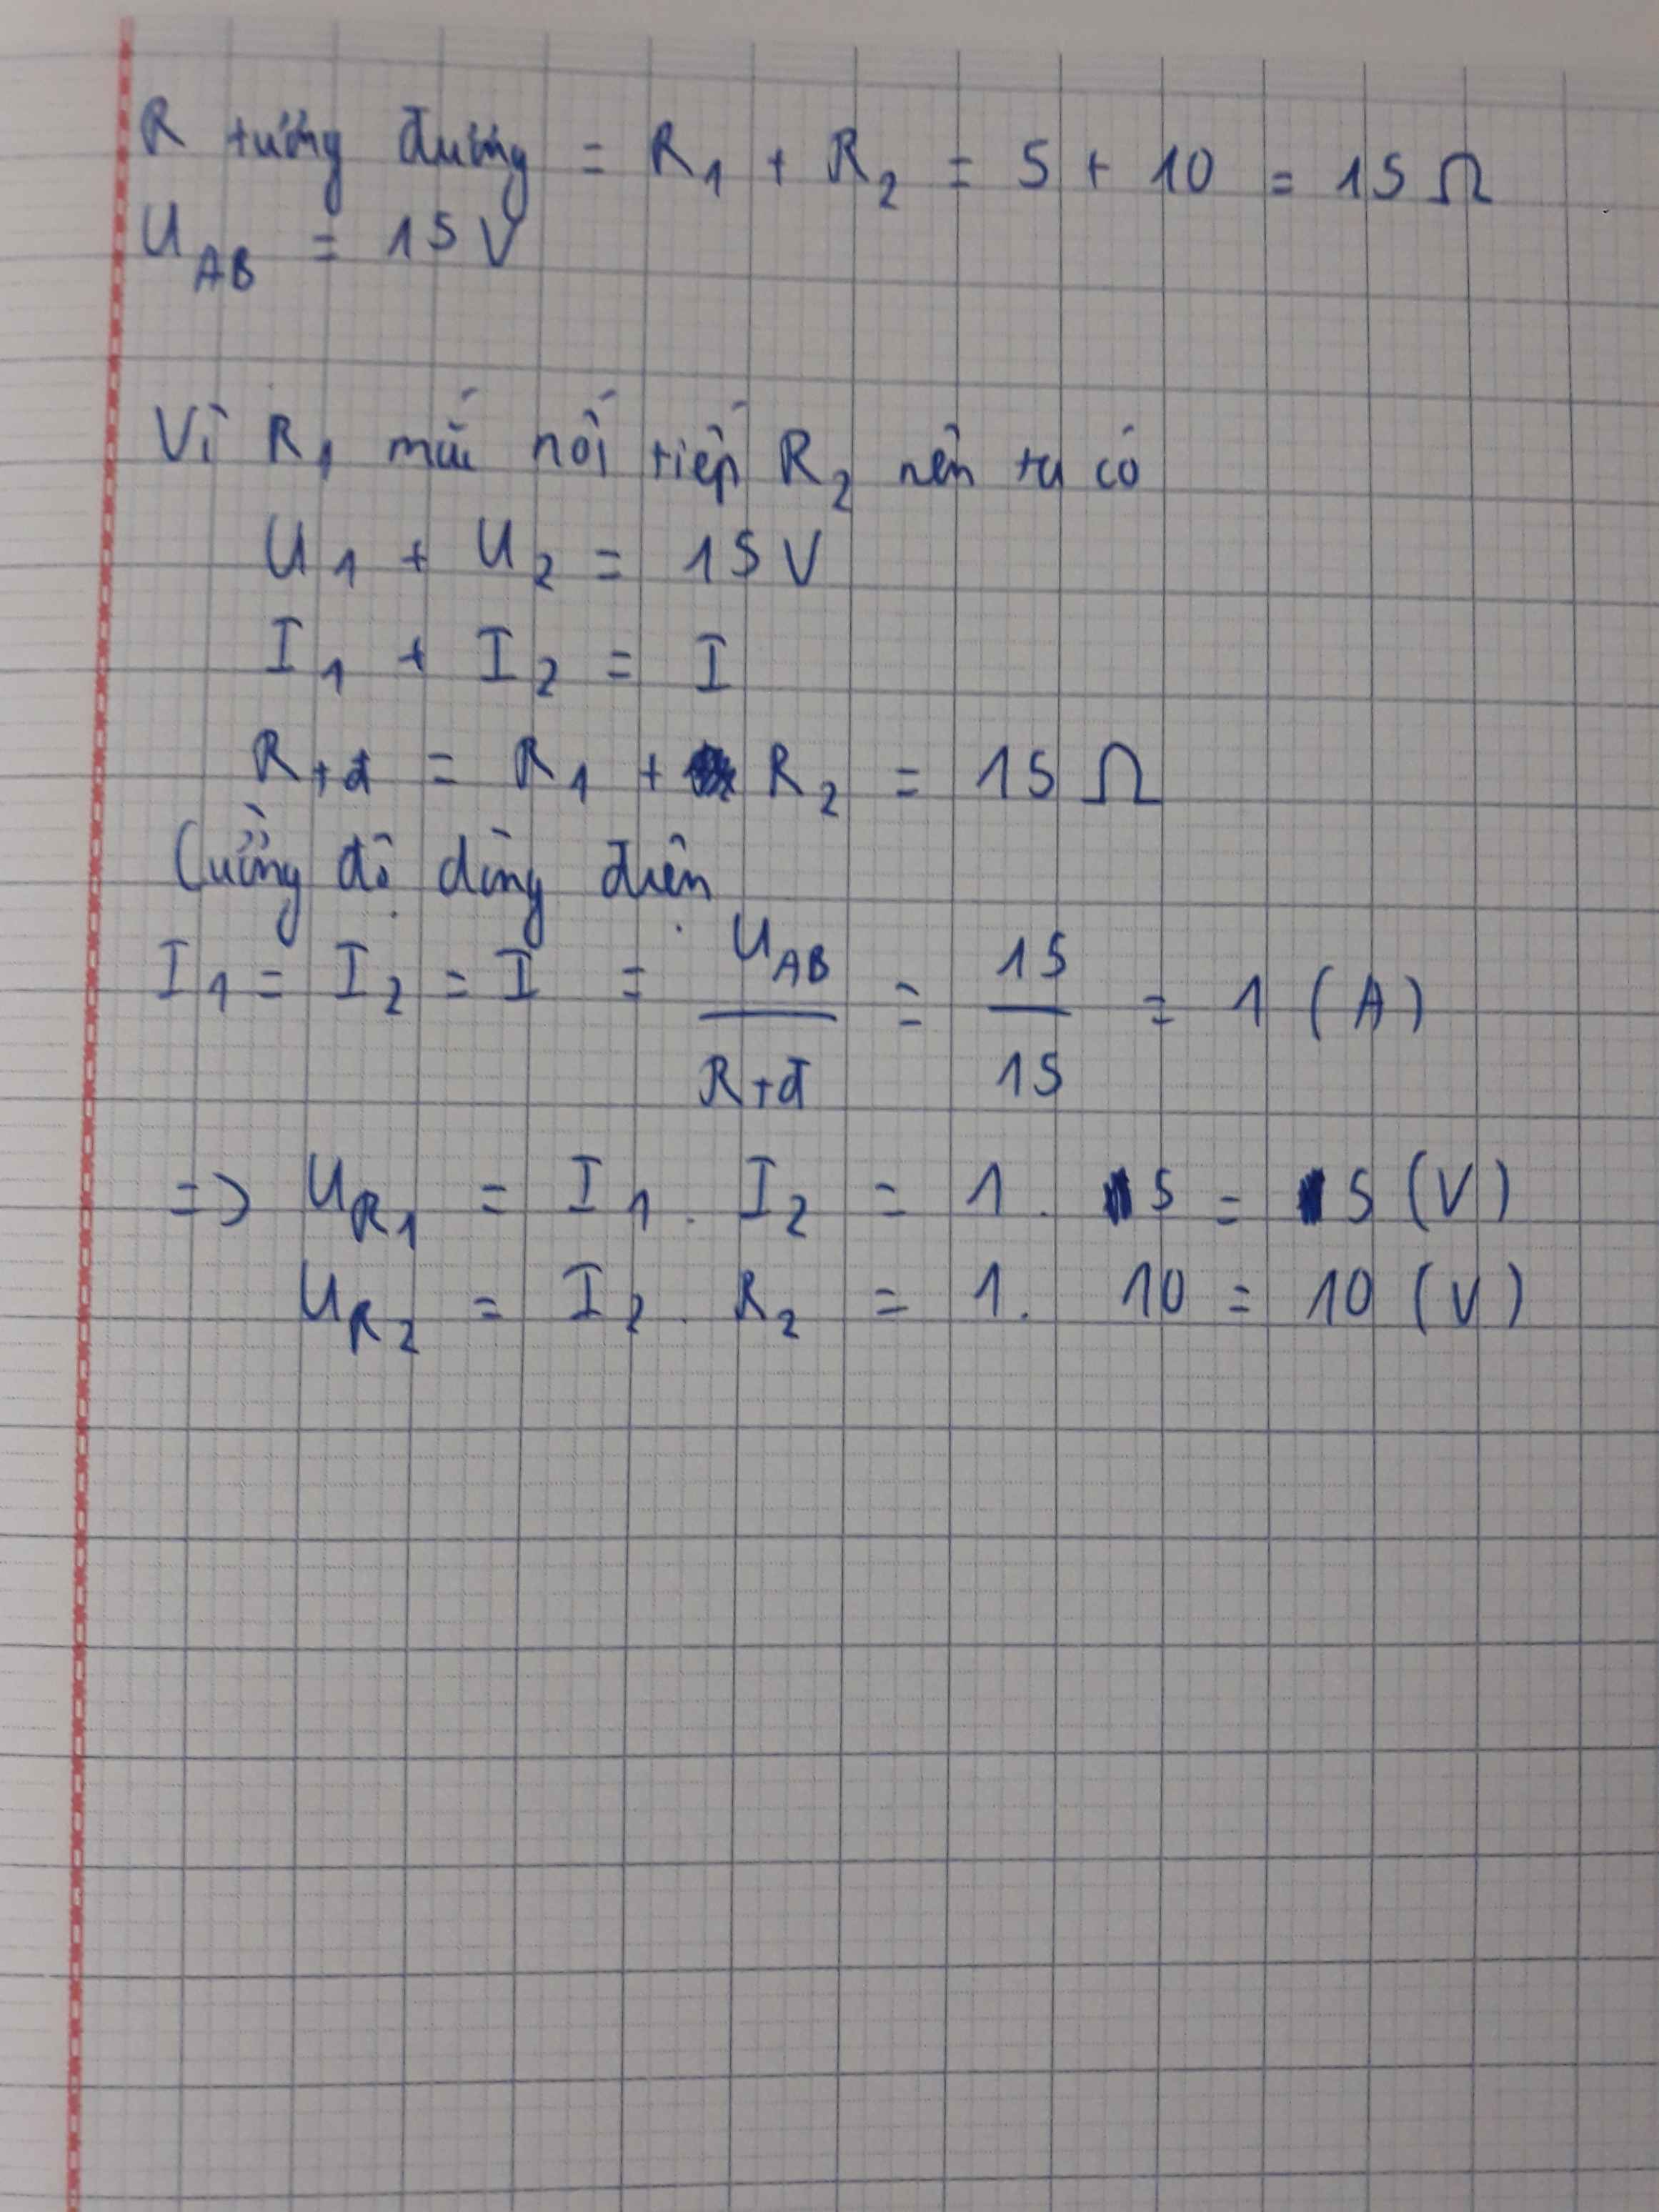 R tương đương = R₁ + R₂ = 5 + 10 = 15 Ω
U_AB = 15 V
Vì R₁ mắc nối tiếp R₂ nên ta có
U₁ + U₂ = 15 V
I₁ + I₂ = I
R_tđ = R₁ + R₂ = 15 Ω
Cường độ dòng điện
I₁ = I₂ = I = U_AB / R_tđ = 15 / 15 = 1 (A)
=> U_R₁ = I₁ . I₂ = 1 . 5 = 5 (V)
U_R₂ = I₂ . R₂ = 1 . 10 = 10 (V)